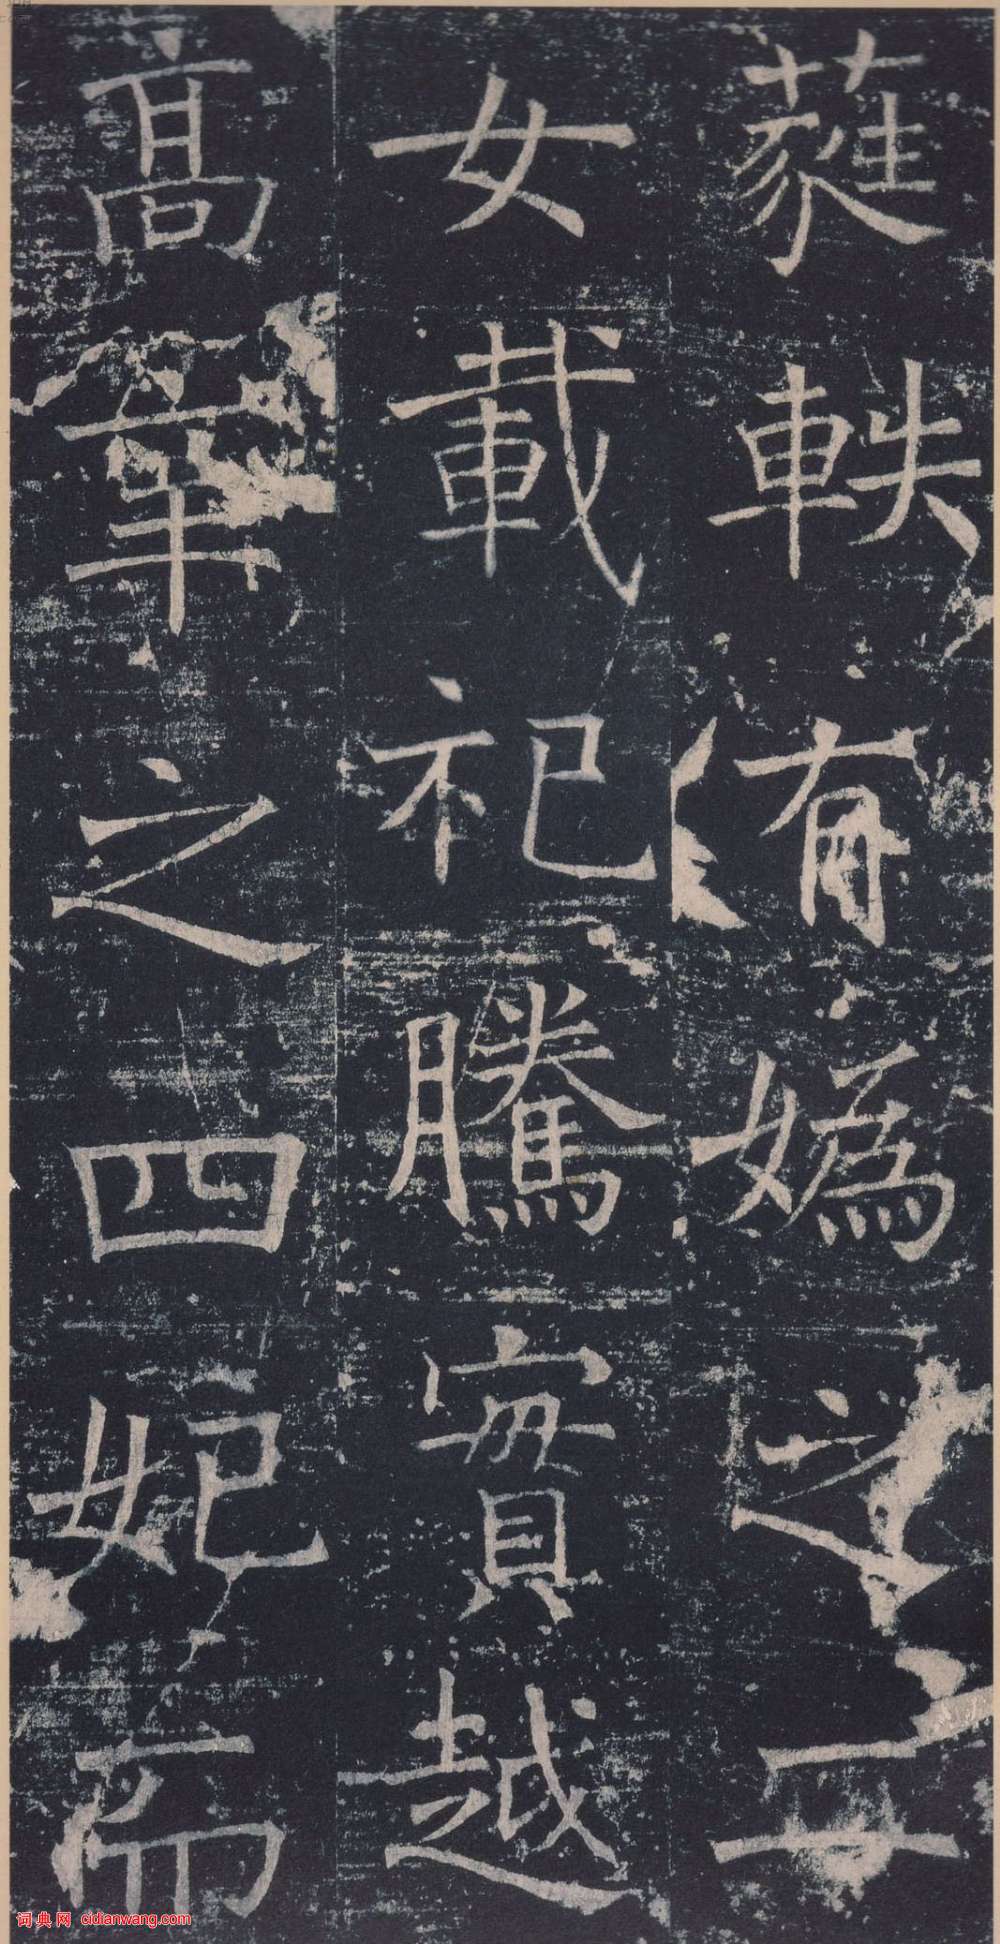 蕤軼有媯之二
女載祀騰實越
高辛之四妃而
词典网 cidianwang.com